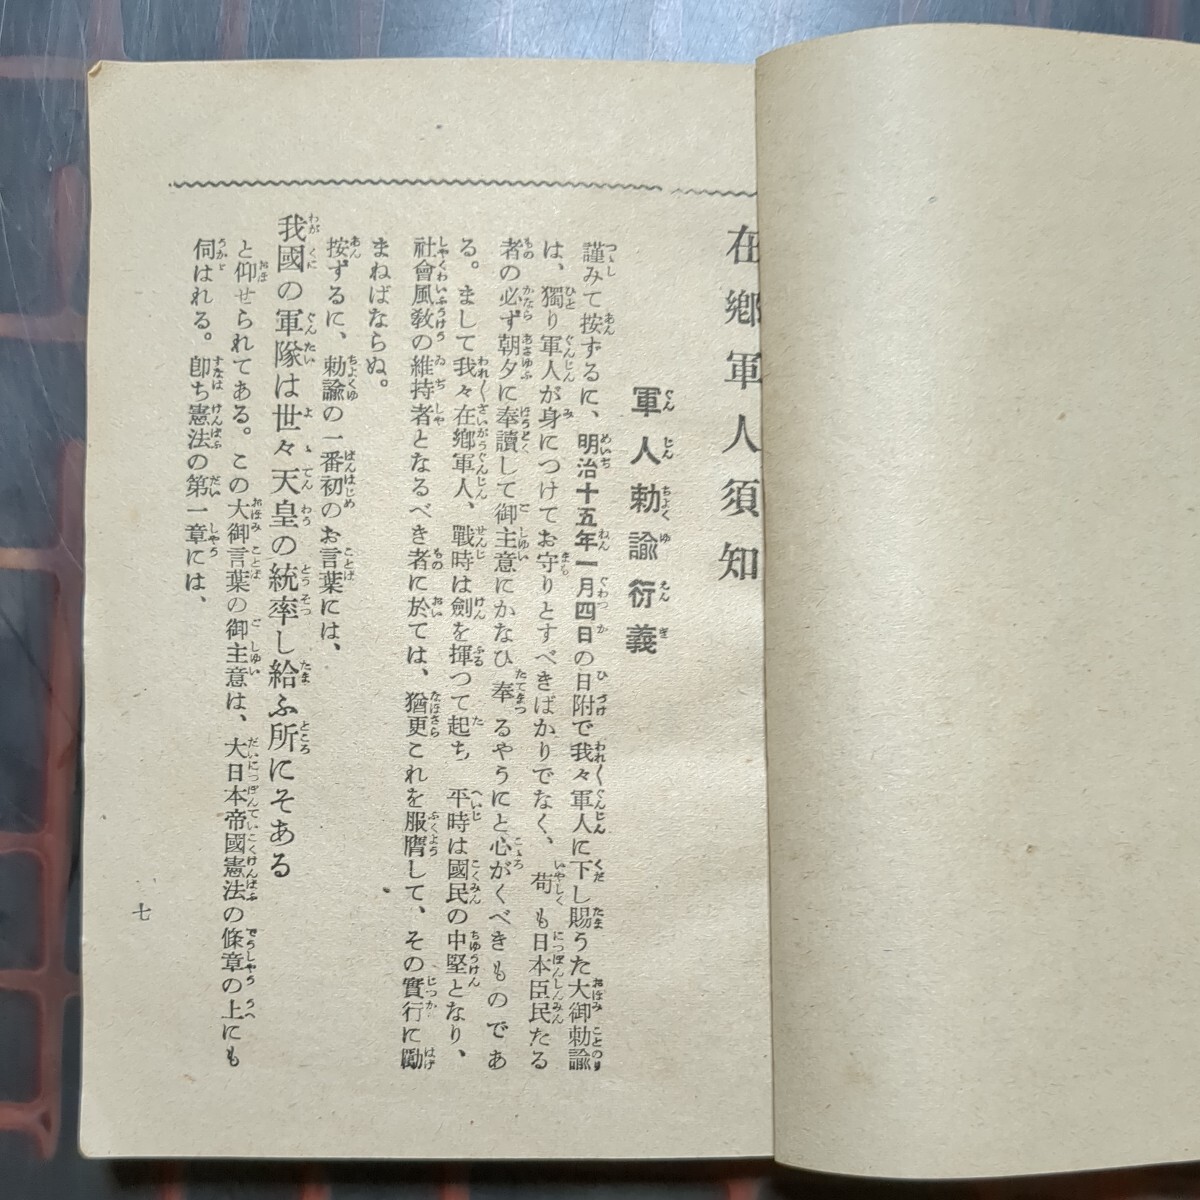 在鄕軍人須知
軍人勅諭衍義
謹みて按ずるに、明治十五年一月四日の日附で我々軍人に下し賜うた大御勅諭
は、獨り軍人が身につけてお守りとすべきばかりでなく、苟も日本臣民たる
者の必ず朝夕に奉讀して御主意にかなひ奉るやうにと心がくべきものであ
る。まして我々在鄕軍人、戰時は劍を揮つて起ち　平時は國民の中堅となり、
社會風敎の維持者となるべき者に於ては、猶更これを服膺して、その實行に勵
まねばならぬ。
按ずるに、勅諭の一番初のお言葉には、
我國の軍隊は世々天皇の統率し給ふ所にそある
と仰せられてある。この大御言葉の御主意は、大日本帝國憲法の條章の上にも
伺はれる。卽ち憲法の第一章には、
七